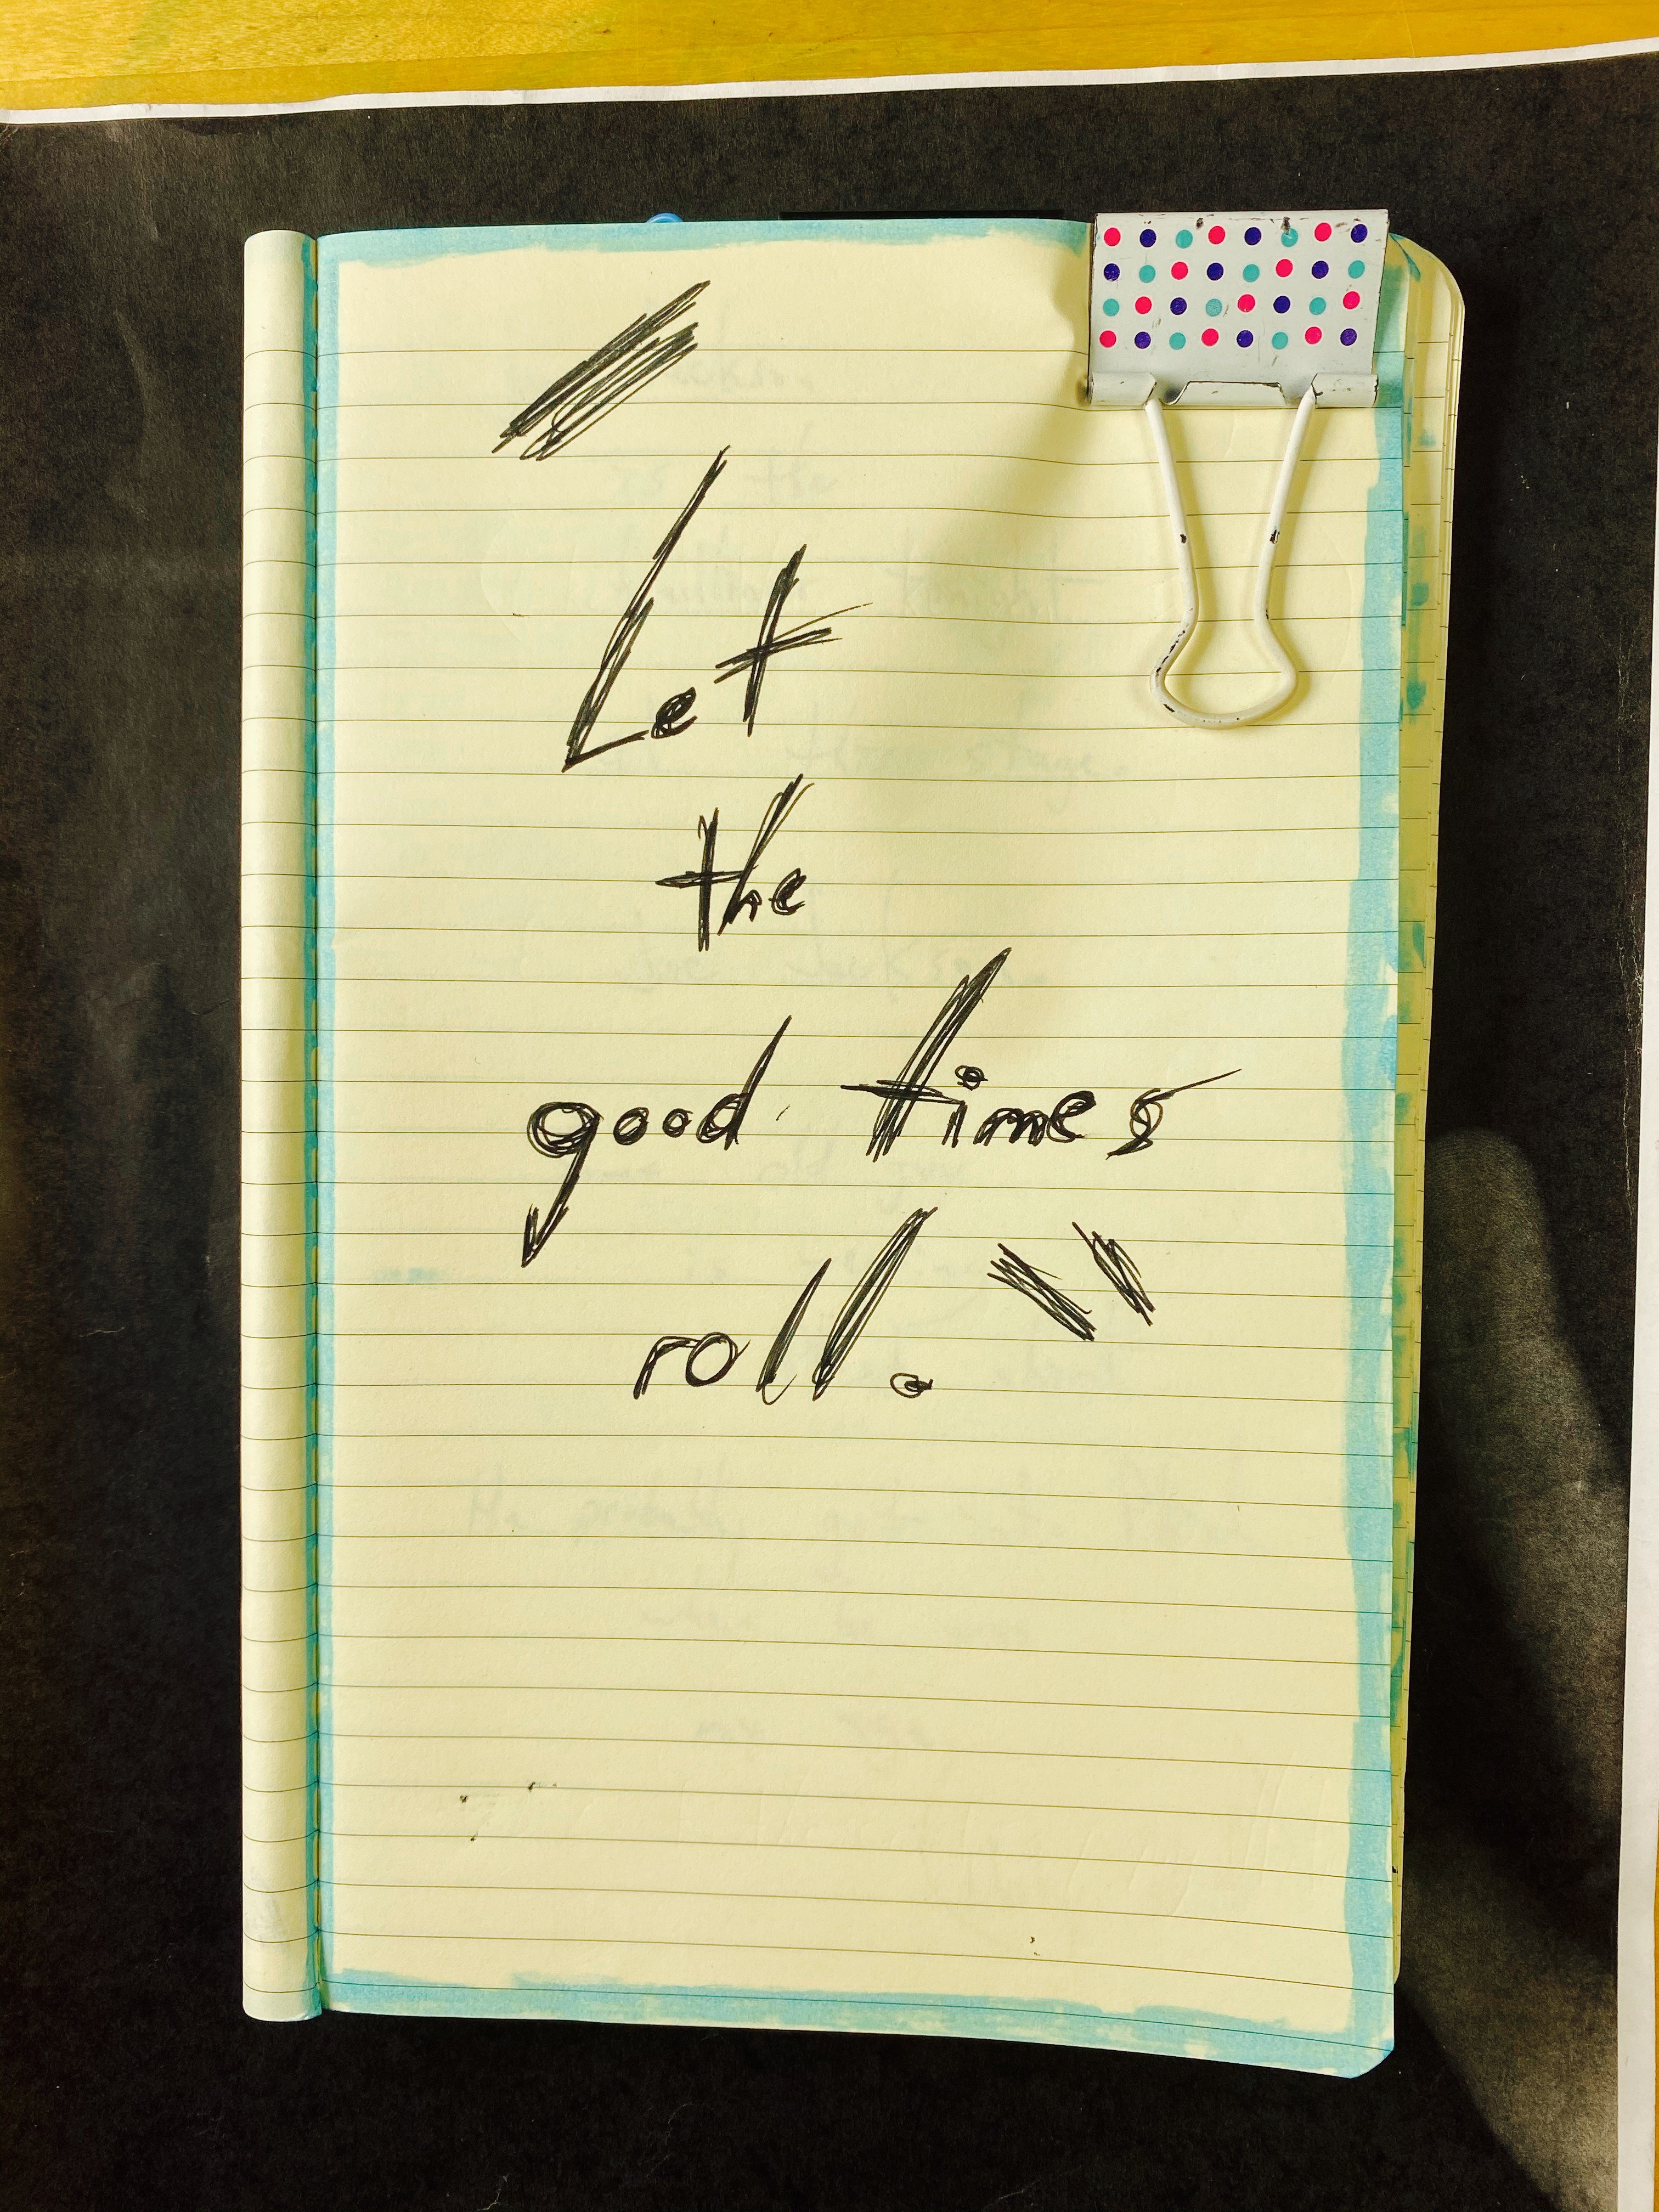 "Let
the
good times
roll."